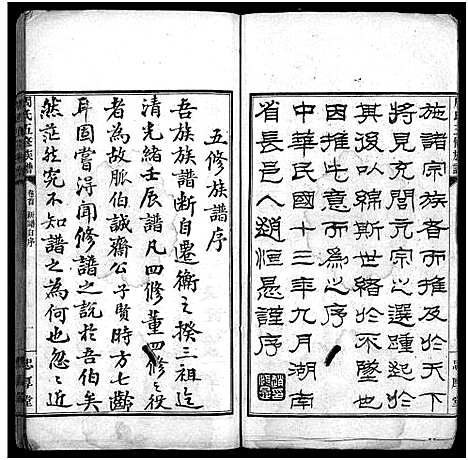 施諸宗族者而推及於天下
將見充閭亢宗之選踵起於
其後以綿斯世緒於不墜也
因推此意而為之序
中華民國十三年九月湖南
省長邑人趙恒惕謹序
五修族譜序
吾族族譜斷自遷衡之揆三祖迄
清光緒壬辰譜凡四修董四修之役
者為故脈伯誠齋公子賢時七齡
耳固嘗潯聞修譜之說於吾伯矣
然茫然究不知譜之為何也忽之近
周氏五修族譜
卷首 新譜自序
一
忠厚堂